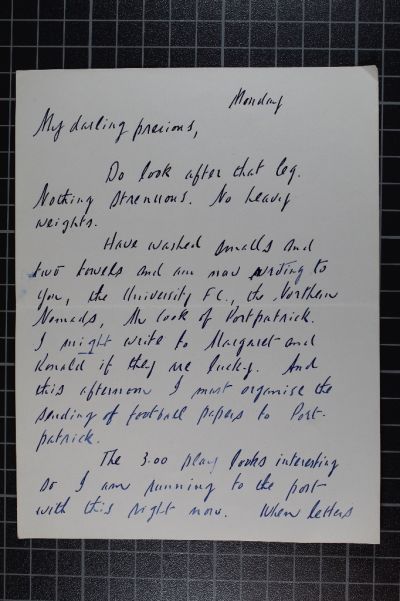 Monday
My darling precious,
Do look after that leg.
Nothing strenuous. No heavy
weights.
Have washed smalls and
two towels and am now writing to
you, the University F.C., the Northern
Nomads, the cook of Portpatrick.
I might write to Margaret and
Ronald if they are lucky. And
this afternoon I must organise the
sending of football papers to Port-
patrick.
The 3.00 play looks interesting
so I am running to the post
with this right now. When letters